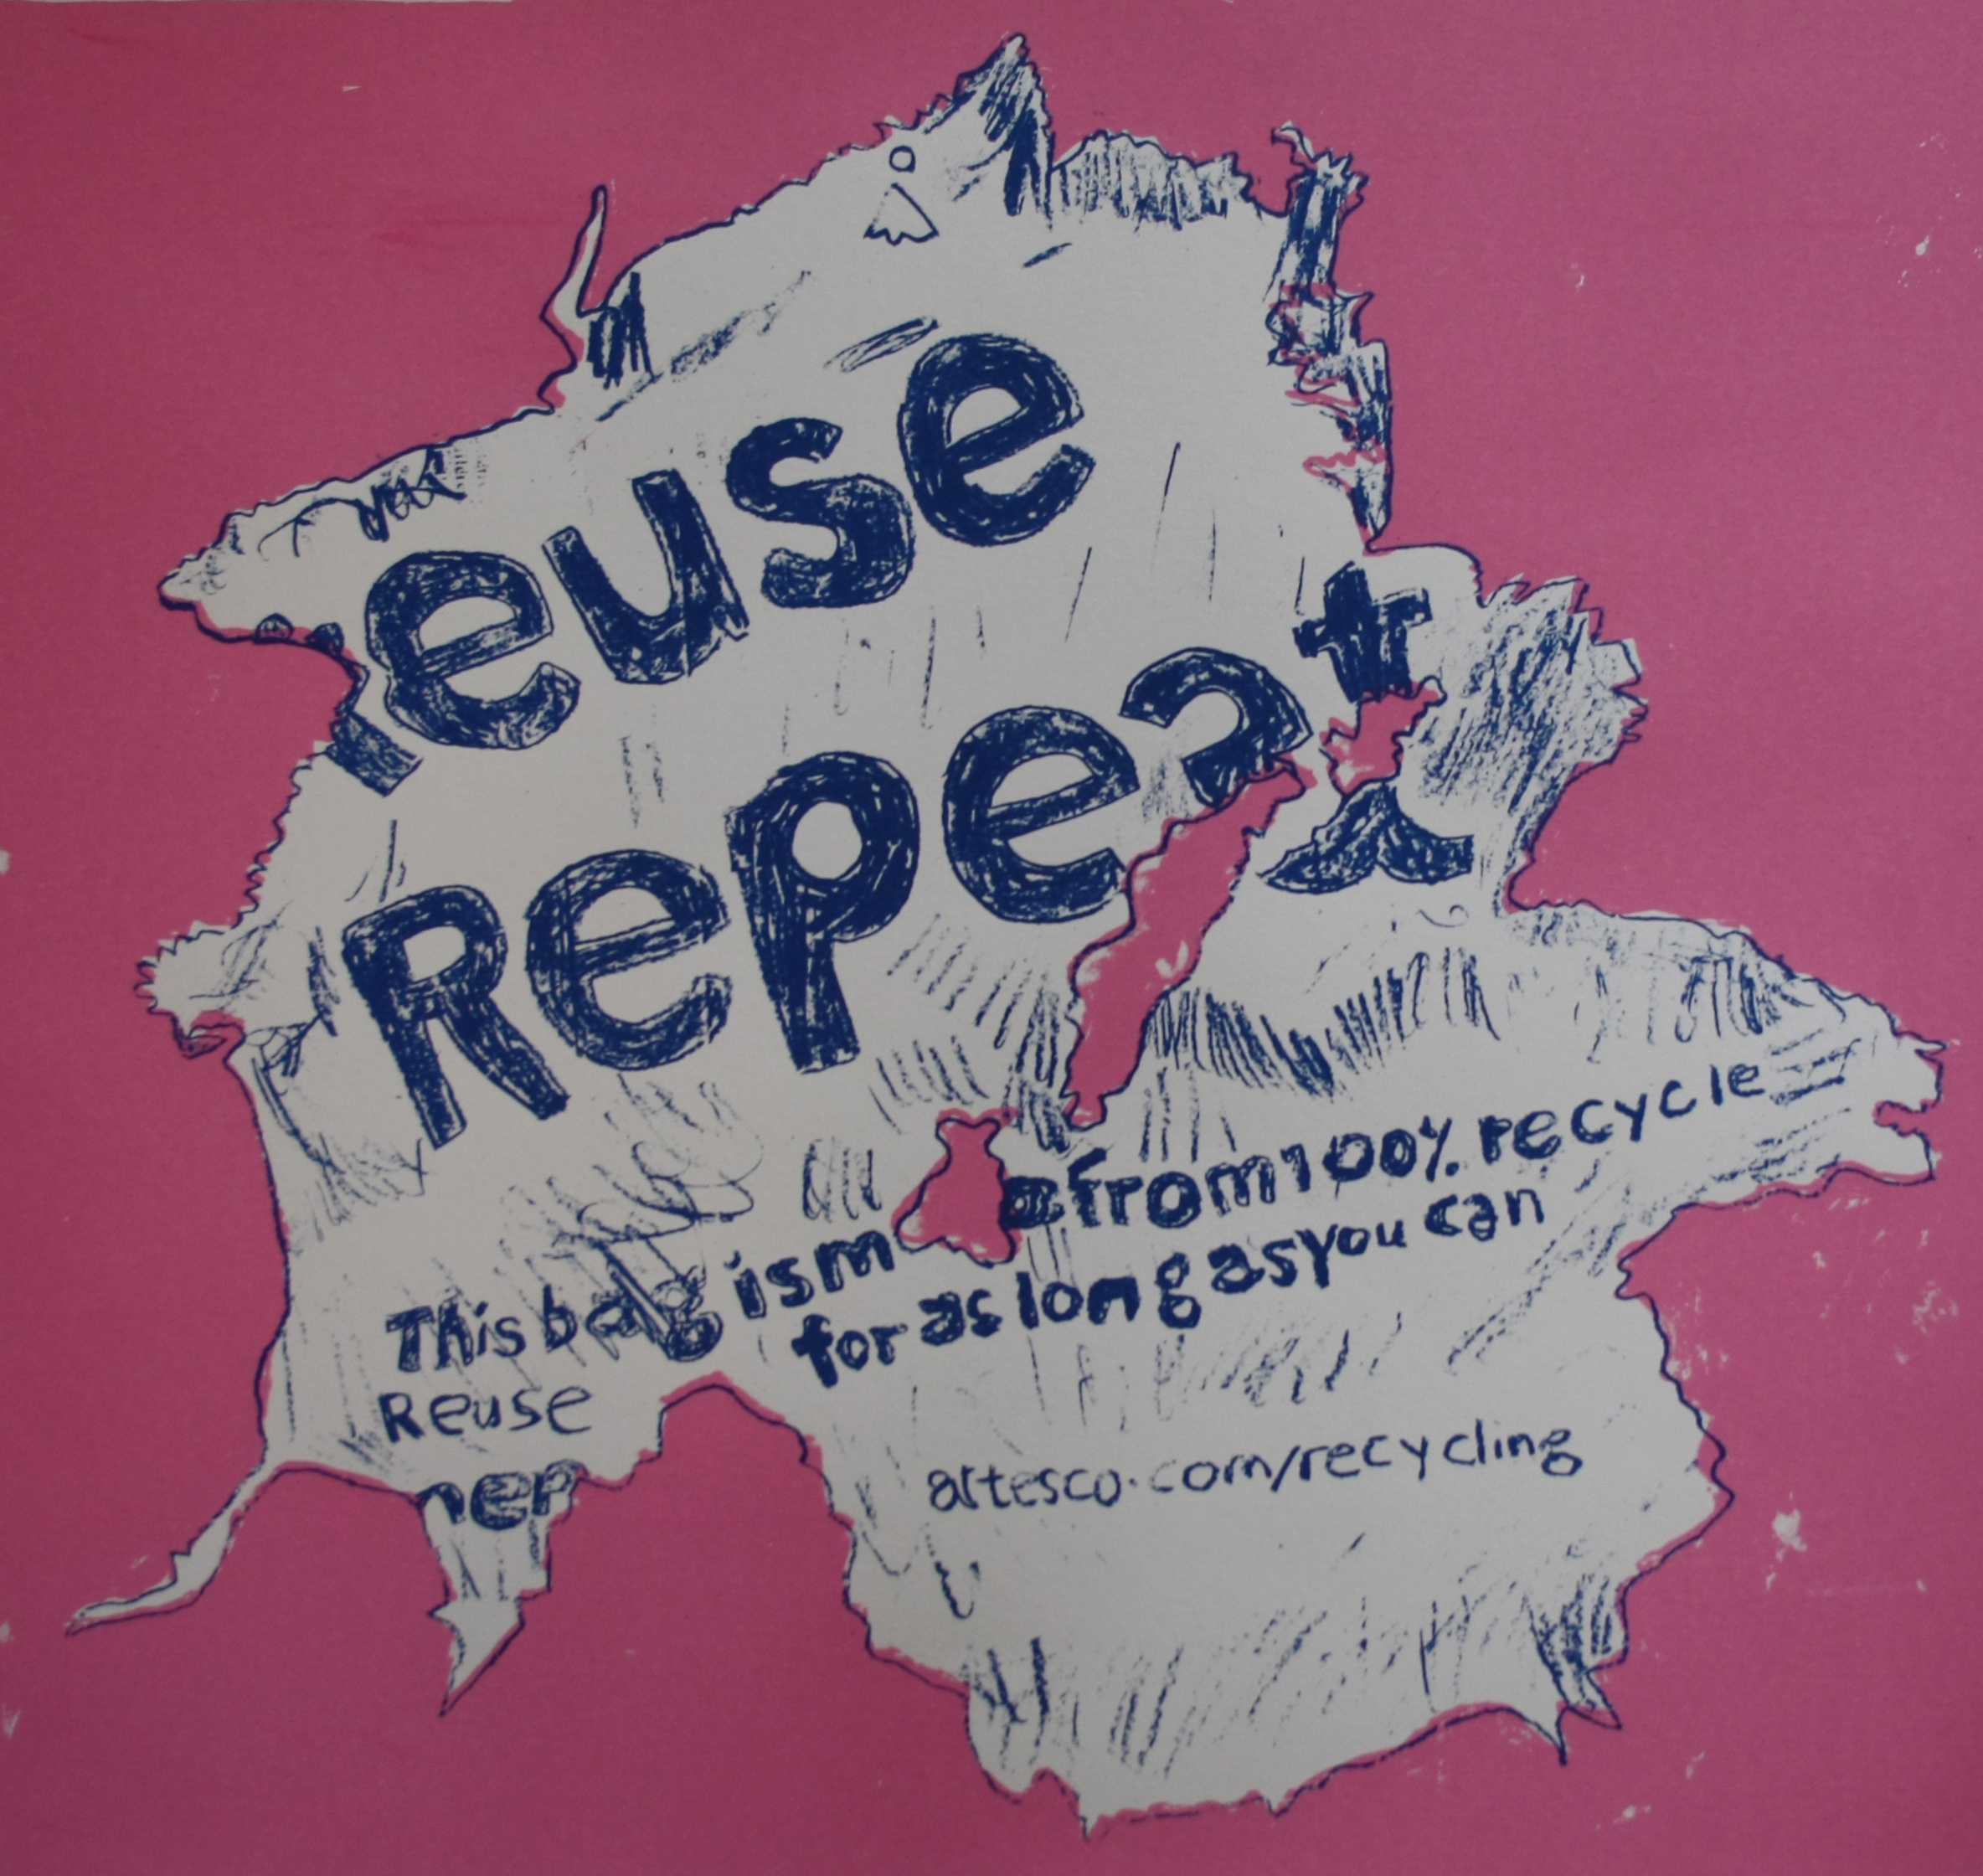 euse
Repeat
This bag is m e from 100% recycle
Reuse for as long as you can
rep
artesco.com/recycling